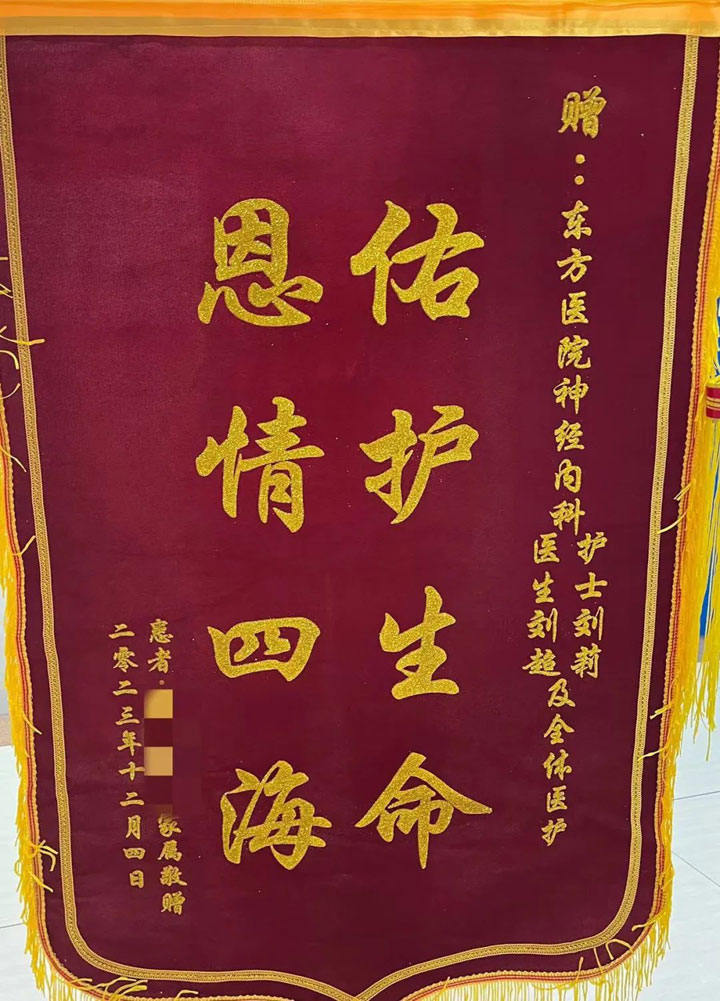 赠：东方医院神经内科
护士刘莉
医生刘超
及全体医护
佑护生命
恩情四海
患者
家属敬赠
二零二三年十二月四日